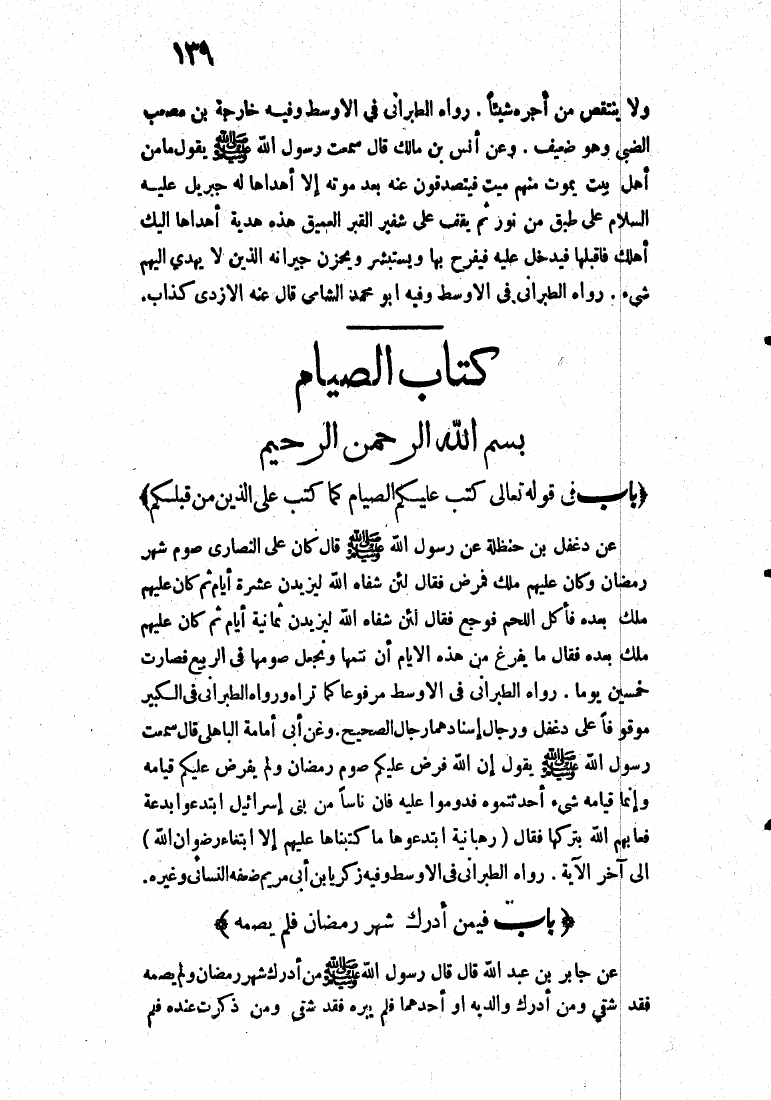 ١٣٩
ولا ينتقص من أجره شيئاً . رواه الطبرانى فى الاوسط وفيه خارجة بن مصعب
الضبي وهو ضعيف . وعن أنس بن مالك قال سمعت رسول الله ﷺ يقول مامن
أهل بيت يموت منهم ميت فيتصدقون عنه بعد موته إلا أهداها له جبريل عليه
السلام على طبق من نور ثم يقف على شفير القبر العميق هذه هدية أهداها اليك
أهلك فاقبلها فيدخل عليه فيفرح بها ويستبشر ويحزن جيرانه الذين لا يهدي اليهم
شيء . رواه الطبرانى فى الاوسط وفيه ابو محمد الشامى قال عنه الازدى كذاب.
كتاب الصيام
بسم الله الرحمن الرحيم
﴿باب فى قوله تعالى كتب عليكم الصيام كما كتب على الذين من قبلكم﴾
عن دغفل بن حنظلة عن رسول الله ﷺ قال كان على النصارى صوم شهر
رمضان وكان عليهم ملك فمرض فقال لئن شفاه الله ليزيدن عشرة أيام ثم كان عليهم
ملك بعده فأكل اللحم فوجع فقال لئن شفاه الله ليزيدن ثمانية أيام ثم كان عليهم
ملك بعده فقال ما يفرغ من هذه الايام أن نتمها ونجعل صومها فى الربيع فصارت
خمسين يوما . رواه الطبرانى فى الاوسط مرفوعا كما تراه ورواه الطبرانى فى الكبير
موقوفاً على دغفل ورجال إسنادهما رجال الصحيح. وعن أبى أمامة الباهلى قال سمعت
رسول الله ﷺ يقول إن الله فرض عليكم صوم رمضان ولم يفرض عليكم قيامه
وإنما قيامه شيء أحدثتموه فدوموا عليه فان ناساً من بنى إسرائيل ابتدعوا بدعة
فعابهم الله بتركها فقال ( رهبانية ابتدعوها ما كتبناها عليهم إلا ابتغاء رضوان الله )
الى آخر الآية . رواه الطبرانى فى الاوسط وفيه زكريا بن أبى مريم ضعفه النسائى وغيره.
﴿ باب فيمن أدرك شهر رمضان فلم يصمه ﴾
عن جابر بن عبد الله قال قال رسول الله ﷺ من أدرك شهر رمضان ولم يصمه
فقد شقي ومن أدرك والديه او أحدهما فلم يبره فقد شقي ومن ذكرت عنده فلم